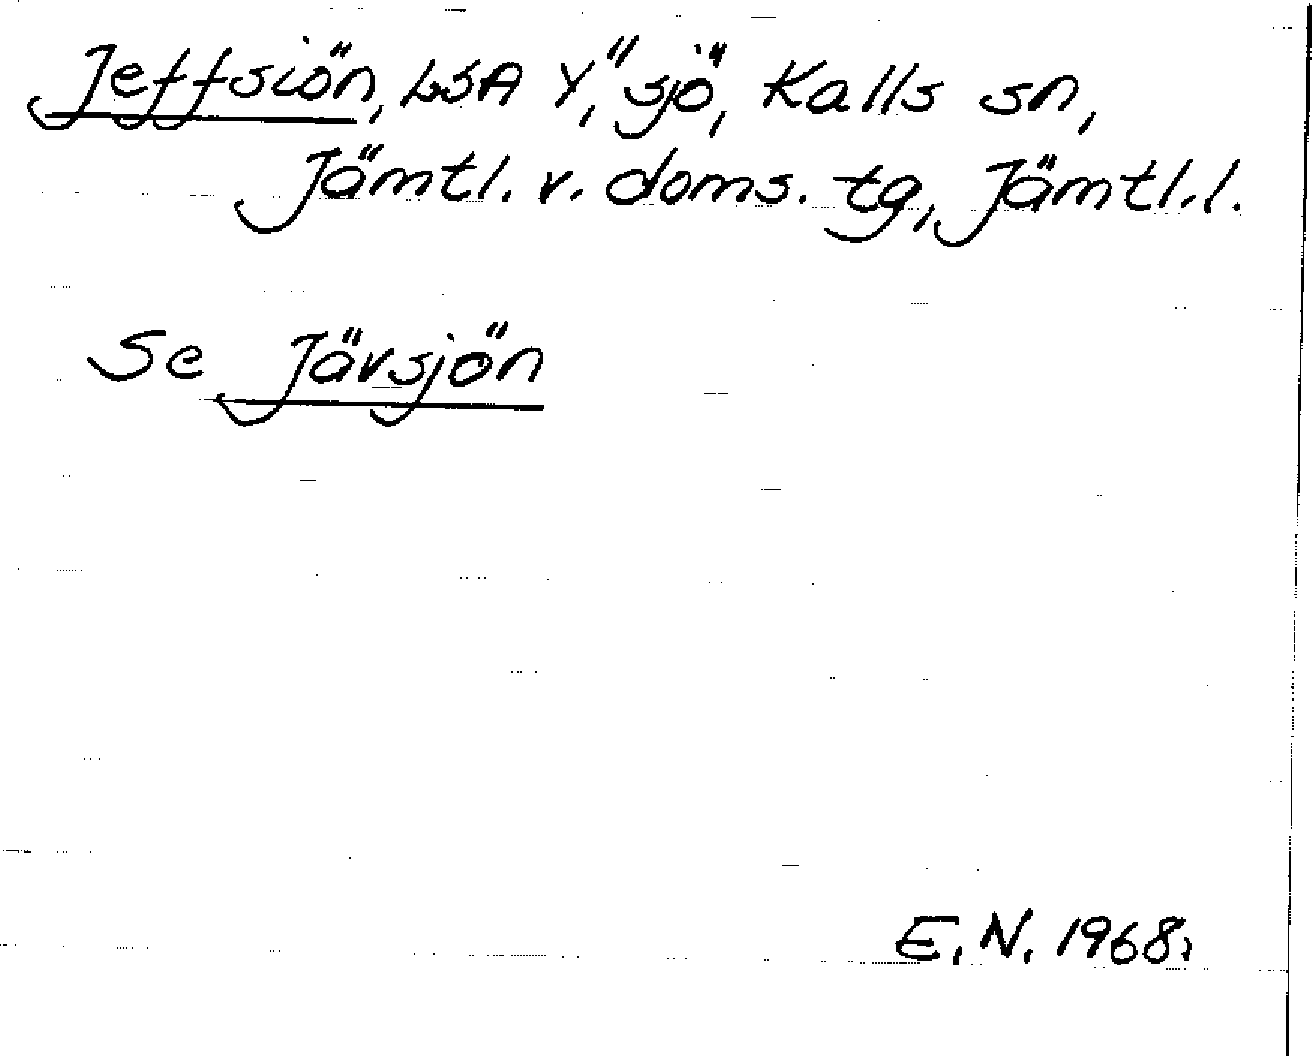 Jeffsiön, LSA Y, "sjö", Kalls sn,
Jämtl. v. doms. tg, Jämtl.l.
Se Jävsjön
E.N. 1968.